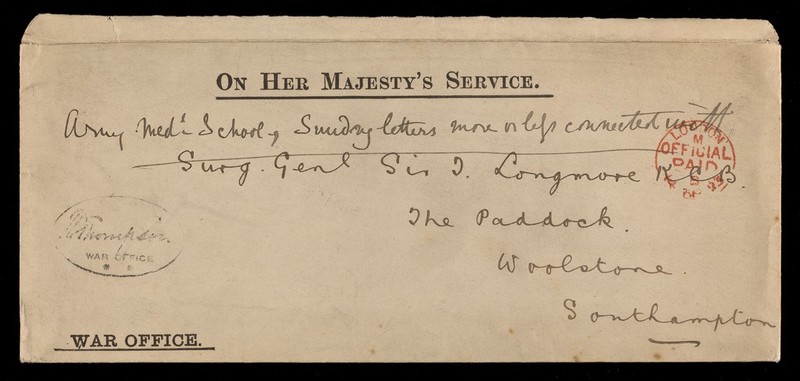 ON HER MAJESTY'S SERVICE.
Army Medl School, Sundry letters more or less connected with
Surg. Genl Sir T. Longmore K.C.B.
LONDON
M
OFFICIAL
PAID
The Paddock.
WAR OFFICE
Woolstone.
Southampton
WAR OFFICE.